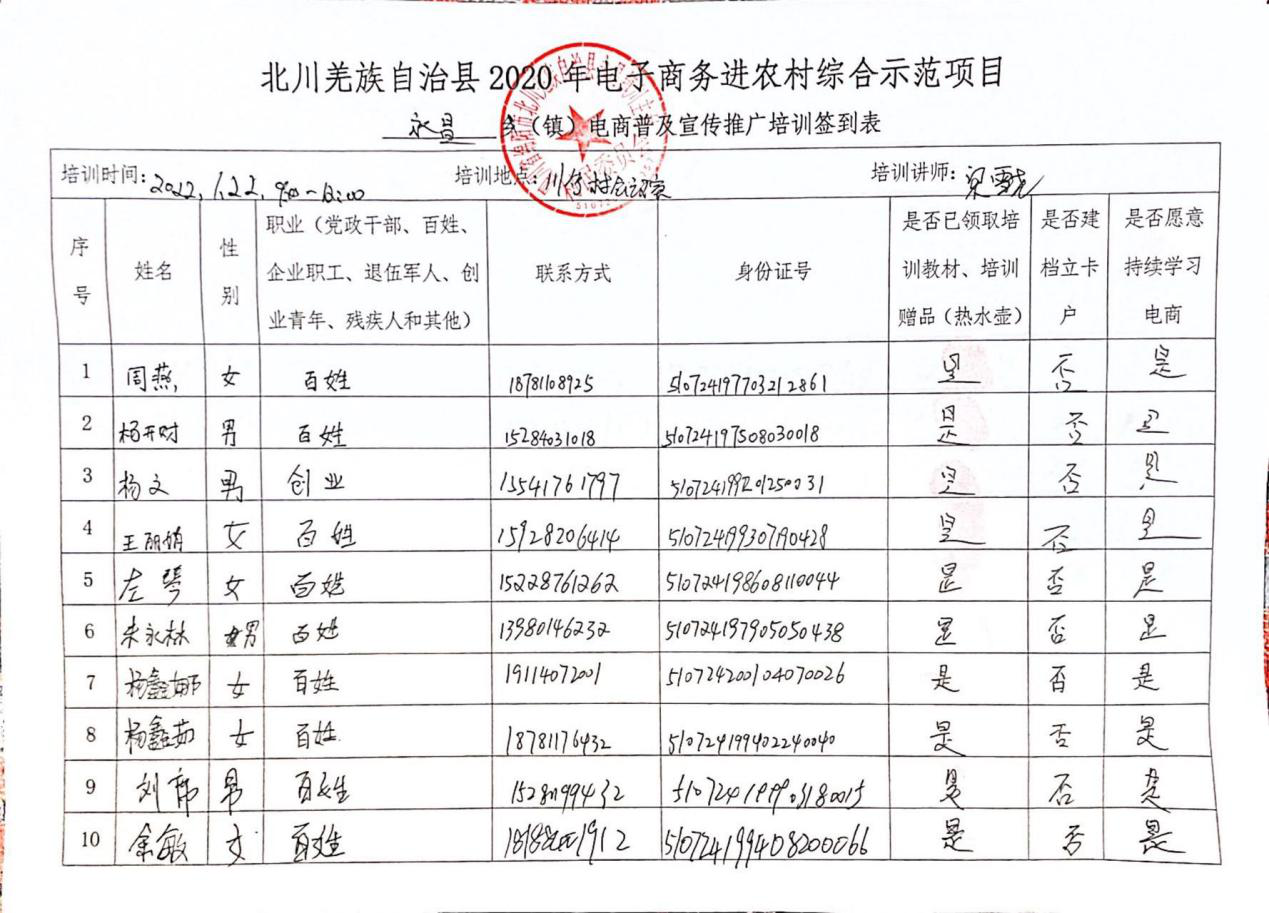 北川羌族自治县 2020 年电子商务进农村综合示范项目
永昌 乡（镇）电商普及宣传推广培训签到表
培训时间: 2022, 1.22, 培训地点: 培训讲师:
序号 姓名 性别 职业（党政干部、百姓、企业职工、退伍军人、创业青年、残疾人和其他） 联系方式 身份证号 是否已领取培训教材、培训赠品（热水壶） 是否建档立卡户 是否愿意持续学习电商
1 周燕 女 百姓 18781108925 510724197703212861 是 否 是
2 杨开财 男 百姓 15284031018 510724197508030018 是 否 是
3 杨文 男 创业 13541761797 510724199201250031 是 否 是
4 王丽娟 女 百姓 15928206414 510724199307190428 是 否 是
5 左琴 女 百姓 15228761262 510724198608110044 是 否 是
6 永林 男 百姓 13980146232 510724197905050438 是 否 是
7 杨鑫娜 女 百姓 19114072001 510724200104070026 是 否 是
8 杨鑫茹 女 百姓 18781176432 510724199402240040 是 否 是
9 刘 男 百姓 是 否 是
10 余敏 女 百姓 510724199408200066 是 否 是